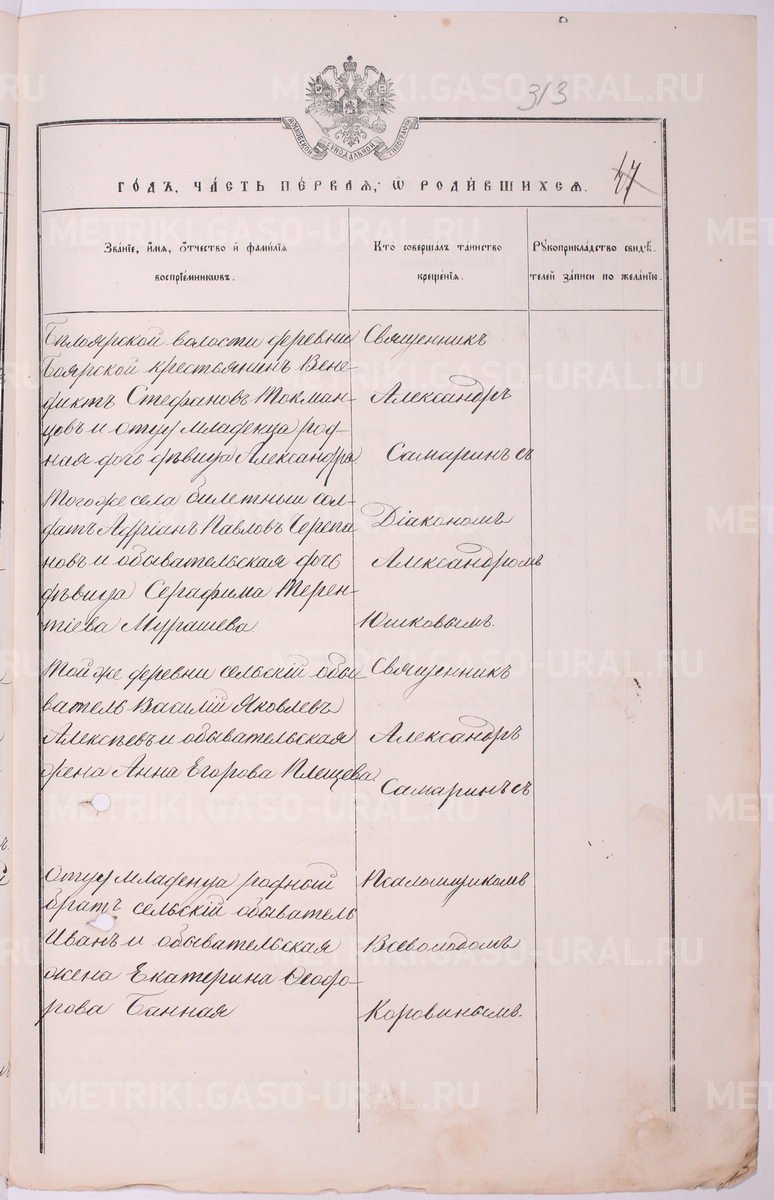 313
МОСКОВСКОЙ СѴНОДАЛЬНОЙ ТИПОГРАФІИ
47
ГОДЪ, ЧАСТЬ ПЕРВАЯ, Ѡ РОДИВШИХСЯ.
Званіе, имя, отчество и фамилія
воспріемниковъ.
Кто совершалъ таинство
крещенія.
Рукоприкладство свидѣ-
телей записи по желанію.
Бѣлоярской волости деревни
Боярской крестьянинъ Вене-
диктъ Стефановъ Токман-
цовъ и отцу младенца род-
ная дочь дѣвица Александра.
Священникъ
Александръ
Самаринъ съ
Того же села билетный сол-
датъ Адріанъ Павловъ Черепа-
новъ и обывательская дочь
дѣвица Серафима Терен-
тіева Мурашева.
Діакономъ
Александромъ
Юшковымъ.
Той же деревни сельскій обы-
ватель Василій Яковлевъ
Алексѣевъ и обывательская
жена Анна Егорова Плещева
Священникъ
Александръ
Самаринъ съ
Отцу младенца родный
братъ сельскій обыватель
Иванъ и обывательская
жена Екатерина Ѳеодо-
рова Банная
Псаломщикомъ
Всеволодомъ
Коровинымъ.
METRIKI.GASO-URAL.RU